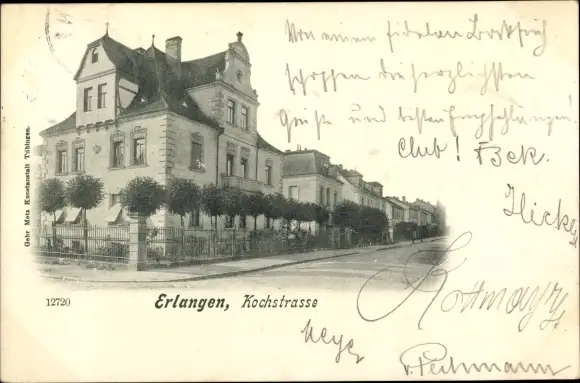 Von einem fidelen Bockfrüh
schoppen die herzlichsten
Grüße und besten Empfehlungen!
Club! Bek.
Hicke
Gebr Metz Kunstanstalt Tübingen.
12720
Erlangen, Kochstrasse
Rottmayr
Meyer
v. Pechmann